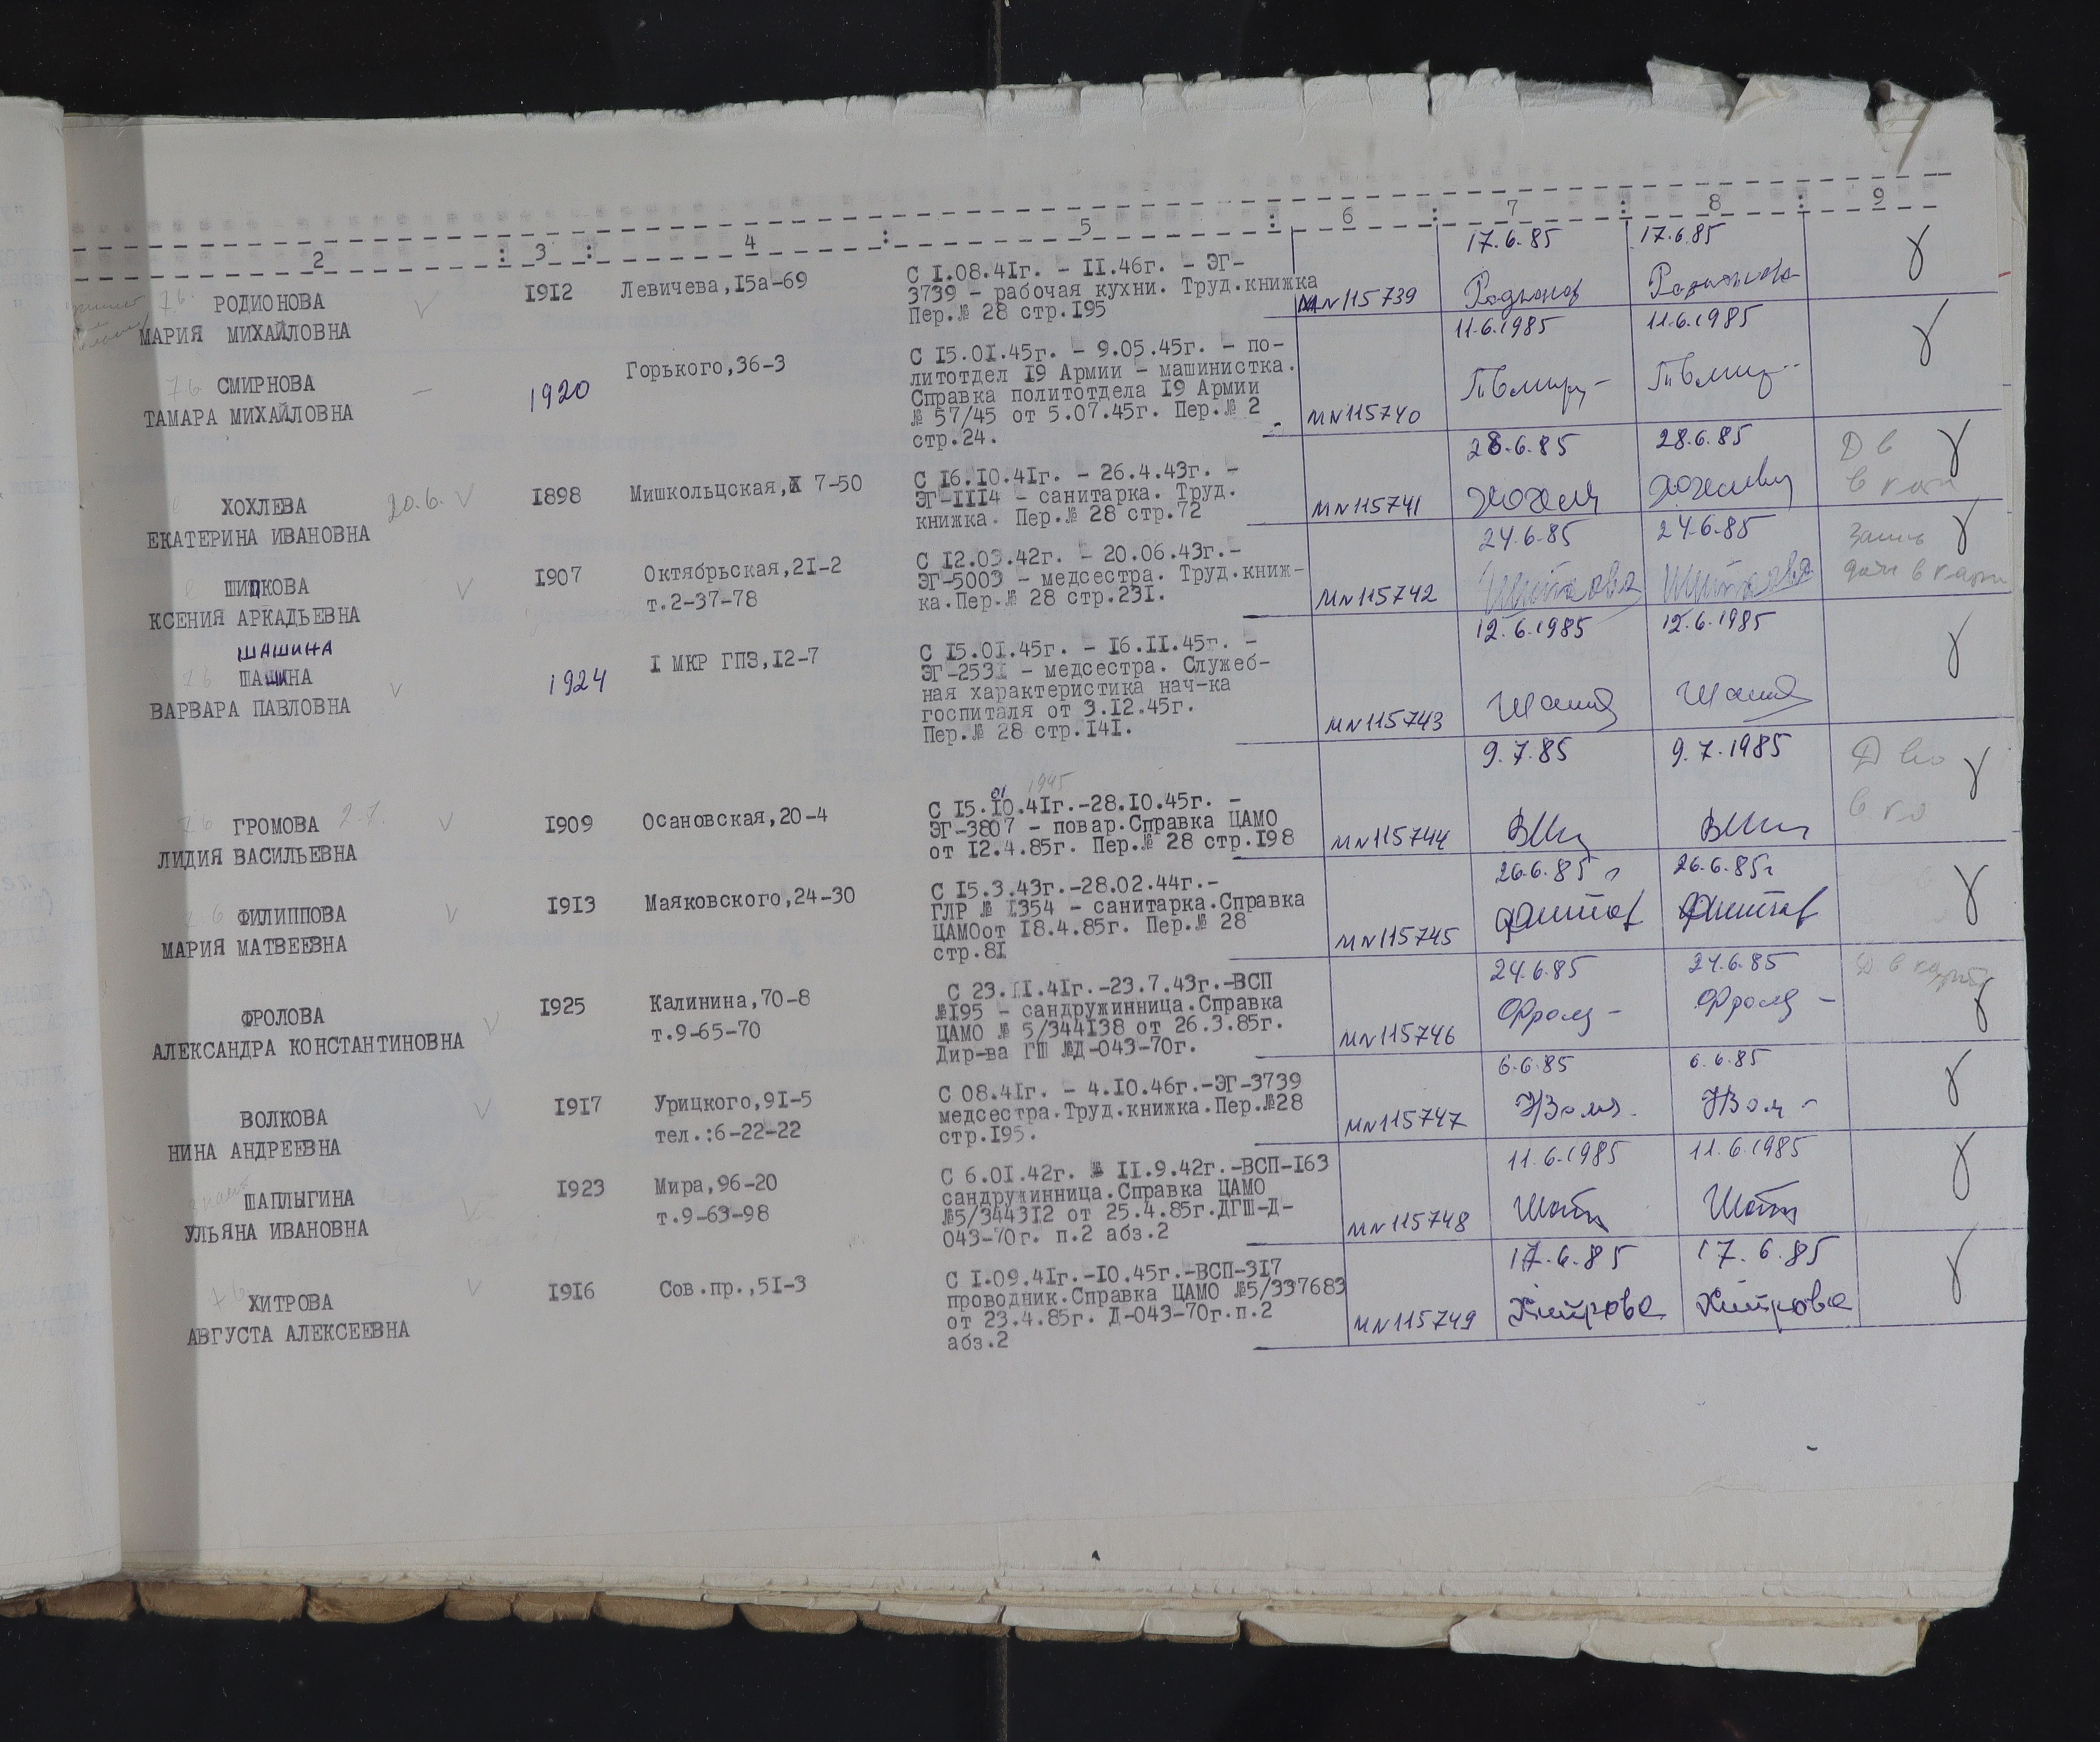 2 : 3 : 4 : 5 : 6 : 7 : 8 : 9
РОДИОНОВА
МАРИЯ МИХАЙЛОВНА
1912
Левичева,15а-69
С 1.08.41г. - 11.46г. - ЭГ-
3739 - рабочая кухни. Труд.книжка
Пер.№ 28 стр.195
МN115739
17.6.85
17.6.85
СМИРНОВА
ТАМАРА МИХАЙЛОВНА
1920
Горького,36-3
С 15.01.45г. - 9.05.45г. - по-
литотдел 19 Армии - машинистка.
Справка политотдела 19 Армии
№ 57/45 от 5.07.45г. Пер.№ 2
стр.24.
МN115740
11.6.1985
11.6.1985
ХОХЛЕВА 20.6.
ЕКАТЕРИНА ИВАНОВНА
1898
Мишкольцская, 7-50
С 16.10.41г. - 26.4.43г. -
ЭГ-1114 - санитарка. Труд.
книжка. Пер.№ 28 стр.72
МN115741
28.6.85
28.6.85
ШИПКОВА
КСЕНИЯ АРКАДЬЕВНА
1907
Октябрьская,21-2
т.2-37-78
С 12.03.42г. - 20.06.43г.-
ЭГ-5003 - медсестра. Труд.книж-
ка.Пер.№ 28 стр.231.
МN115742
24.6.85
24.6.85
ШАШИНА
ШАШИНА
ВАРВАРА ПАВЛОВНА
1924
1 МКР ГПЗ,12-7
С 15.01.45г. - 16.11.45г. -
ЭГ-2531 - медсестра. Служеб-
ная характеристика нач-ка
госпиталя от 3.12.45г.
Пер.№ 28 стр.141.
МN115743
12.6.1985
12.6.1985
ГРОМОВА 2.7.
ЛИДИЯ ВАСИЛЬЕВНА
1909
Осановская,20-4
01 1945
С 15.10.41г.-28.10.45г. -
ЭГ-3807 - повар.Справка ЦАМО
от 12.4.85г. Пер.№ 28 стр.198
МN115744
9.7.85
9.7.1985
ФИЛИППОВА
МАРИЯ МАТВЕЕВНА
1913
Маяковского,24-30
С 15.3.43г.-28.02.44г.-
ГЛР № 1354 - санитарка.Справка
ЦАМОот 18.4.85г. Пер.№ 28
стр.81
МN115745
26.6.85г
26.6.85г
ФРОЛОВА
АЛЕКСАНДРА КОНСТАНТИНОВНА
1925
Калинина,70-8
т.9-65-70
С 23.11.41г.-23.7.43г.-ВСП
№195 - сандружинница.Справка
ЦАМО № 5/344138 от 26.3.85г.
Дир-ва ГШ №Д-043-70г.
МN115746
24.6.85
24.6.85
ВОЛКОВА
НИНА АНДРЕЕВНА
1917
Урицкого,91-5
тел.:6-22-22
С 08.41г. - 4.10.46г.-ЭГ-3739
медсестра.Труд.книжка.Пер.№28
стр.195.
МN115747
6.6.85
6.6.85
ШАПЛЫГИНА
УЛЬЯНА ИВАНОВНА
1923
Мира,96-20
т.9-63-98
С 6.01.42г. - 11.9.42г.-ВСП-163
сандружинница.Справка ЦАМО
№5/344312 от 25.4.85г.ДГШ-Д-
043-70г. п.2 абз.2
МN115748
11.6.1985
11.6.1985
ХИТРОВА
АВГУСТА АЛЕКСЕЕВНА
1916
Сов.пр.,51-3
С 1.09.41г.-10.45г.-ВСП-317
проводник.Справка ЦАМО №5/337683
от 23.4.85г. Д-043-70г.п.2
абз.2
МN115749
17.6.85
Хитрова
17.6.85
Хитрова